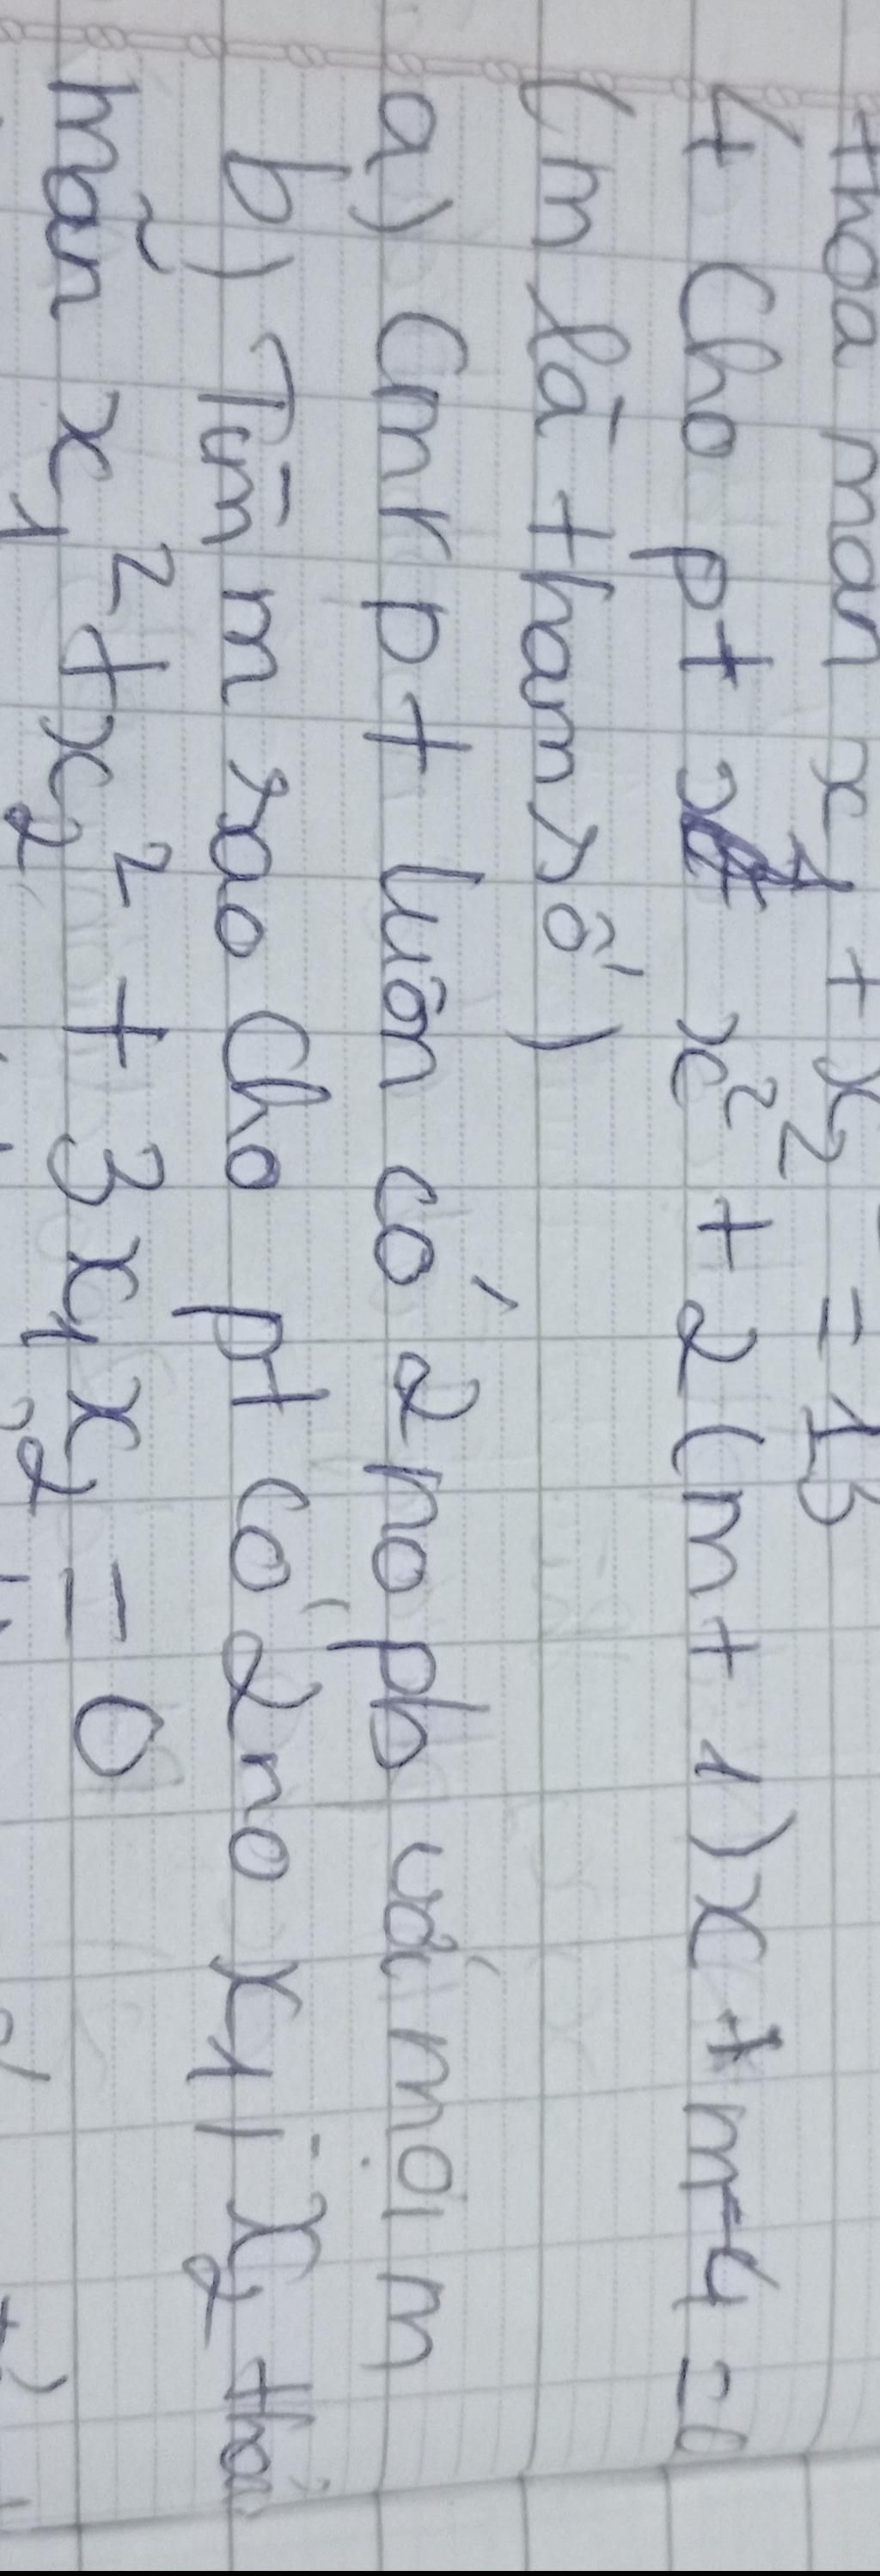 thoả mãn x1 + x2 = 13
4 Cho pt x² + 2(m+1)x + m-4 = 0
(m là tham số)
a) Cmr pt luôn có 2 no pb với mọi m
b) Tìm m sao cho pt có 2 no x1, x2 thoả
mãn x1² + x2² + 3x1x2 = 0